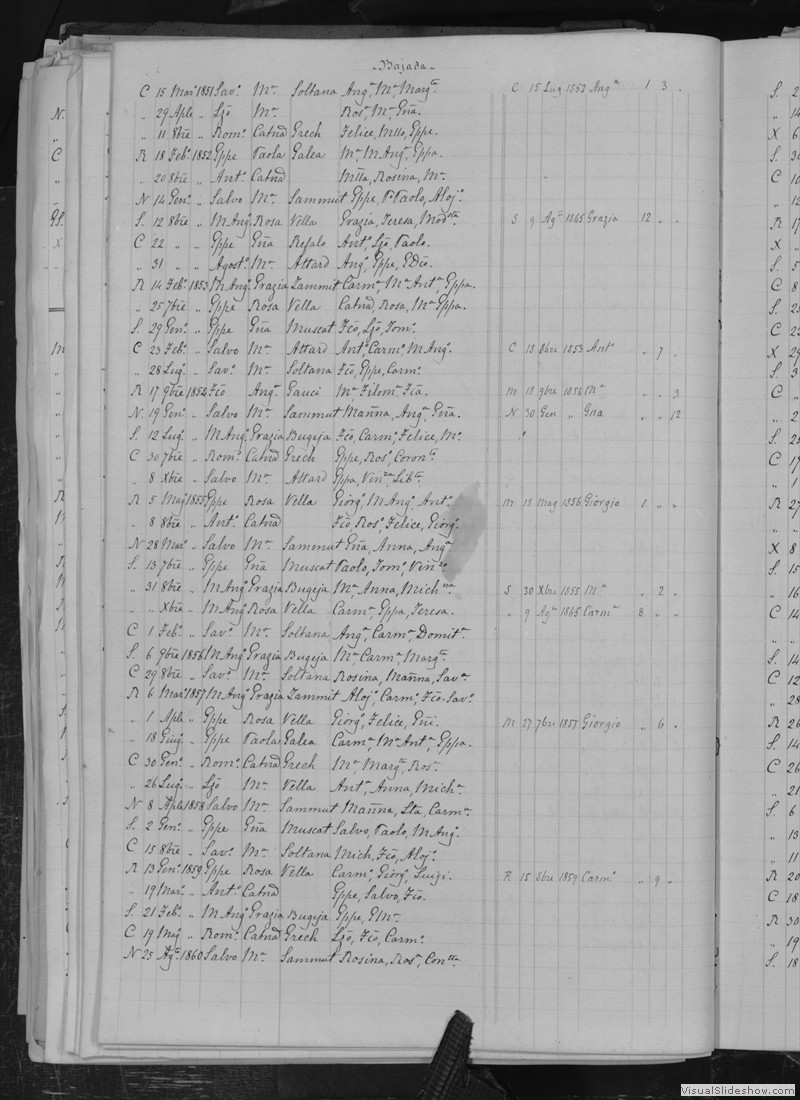 Bajada
C 15 Mar. 1851 Sav. Ma. Soltana Ang.a Ma. Marg.ta C 15 Lug 1852 Ang.a 1 3 "
" 29 Aple " Ljo Ma. Ros.a Ma. Gña.
" 11 8bre " Rom. Catnã Grech Felice, Mtto, Gppe.
R 18 Feb. 1852 Gppe Paola Galea Ma. M Ang. Gppa.
" 20 8bre " Ant. Catnã Mtta, Rosina, Ma.
N 14 Gen. " Salvo Ma. Sammut Gppe, Paolo, Aloj.
S. 12 8bre " M Ang. Rosa Vella Grazia, Teresa, Mod.sta S 9 Ag.to 1865 Grazia 12 " "
C 22 " " Gppe Gña Refalo Ant. Ljo, Paolo.
" 31 " " Agost. Ma. Attard Ang. Gppe,
R 14 Feb. 1853 M Ang. Grazia Zammit Carm.a Ma. Ant.a Gppa.
" 25 7bre " Gppe Rosa Vella Catnã, Rosa, Ma. Gppa.
S. 29 Gen. " Gppe Gña Muscat Fco, Ljo, Tom.
C 23 Feb. " Salvo Ma. Attard Ant. Carm. M Ang. C 13 8bre 1853 Ant. " 7 "
" 28 Lug. " Sav. Ma. Soltana Fco, Gppe, Carm.
R 17 9bre 1854 Fco Ang.a Gauci Ma. Filom.a Fca. M 18 9bre 1854 Ma. " " 3
N. 19 Gen. " Salvo Ma. Sammut Mañna, Ang.a Gña. N 30 Gen " Gña " " 12
S. 12 Lug. " M Ang. Grazia Bugeja Fco, Carm. Felice, Ma.
C 30 7bre " Rom. Catnã Grech Gppe, Ros. Coron.
" 8 Xbre " Salvo Ma. Attard Gppa, Lib.ta
R 5 Mag 1855 Gppe Rosa Vella Giorg. M Ang. Ant. M 13 Mag 1856 Giorgio 1 " "
" 8 8bre " Ant. Catnã Fco, Ros. Felice, Giorg.
N. 28 Mar. " Salvo Ma. Sammut Gña, Anna, Ang.a
S. 13 7bre " Gppe Gña Muscat Paolo, Tom.
" 31 8bre " M Ang. Grazia Bugeja Ma. Anna, Mich.na S 30 Xbre 1855 Ma. " 2 "
" " Xbre " M Ang. Rosa Vella Carm.a Gppa, Teresa. " 9 Ag.to 1865 Carm.a 8 " "
C 1 Feb. " Sav. Ma. Soltana Ang.a Carm.a Domit.a
S. 6 9bre 1856 M Ang. Grazia Bugeja Ma. Carm.a Marg.ta
C 29 8bre " Sav. Ma. Soltana Rosina, Mañna, Sav.a
R 6 Mar. 1857 M Ang. Grazia Zammit Aloj. Carm. Fco-Sav.
" 1 Aple " Gppe Rosa Vella Giorg. Felice, M 27 7bre 1857 Giorgio " 6 "
" 18 Giug. " Gppe Paola Galea Carm.a Ma. Ant.a Gppa.
C 30 Gen. " Rom. Catnã Grech Ma. Marg.ta Ros.a
" 26 Lug. " Ljo Ma. Vella Ant.a Anna, Mich.a
N 8 Aple 1858 Salvo Ma. Sammut Mañna, Carm.a
S. 2 Gen. " Gppe Gña Muscat Salvo, Paolo, M Ang.
C 15 8bre " Sav. Ma. Soltana Mich, Fco, Aloj.
R 13 Gen. 1859 Gppe Rosa Vella Carm. Giorg. Luigi. R 15 8bre 1859 Carm. " 9 "
" 19 Mar. " Ant. Catnã Gppe, Salvo, Fco.
S. 21 Feb. " M Ang. Grazia Bugeja Gppe,
C 19 Mag " Rom. Catnã Grech Ljo, Fco, Carm.
N 25 Ag. 1860 Salvo Ma. Sammut Rosina, Ros.a
VisualSlideshow.com